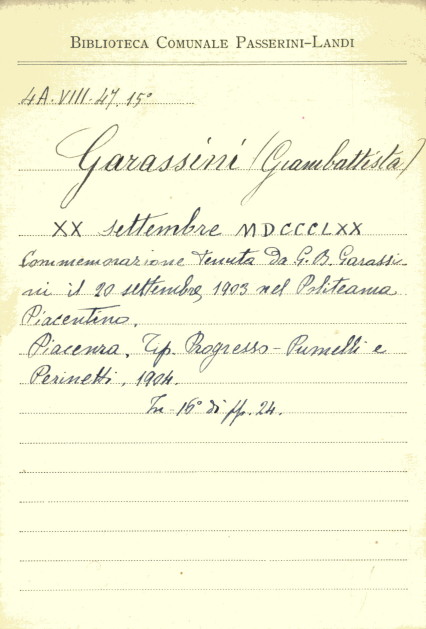 BIBLIOTECA COMUNALE PASSERINI-LANDI
4A.VIII.47.15°
Garassini (Giambattista)
XX settembre MDCCCLXX
Commemorazione tenuta da G.B. Garassi-
ni il 20 settembre 1903 nel Politeama
Piacentino.
Piacenza, Tip. Progresso - Pumelli e
Perinetti, 1904.
In 16° di pp. 24.